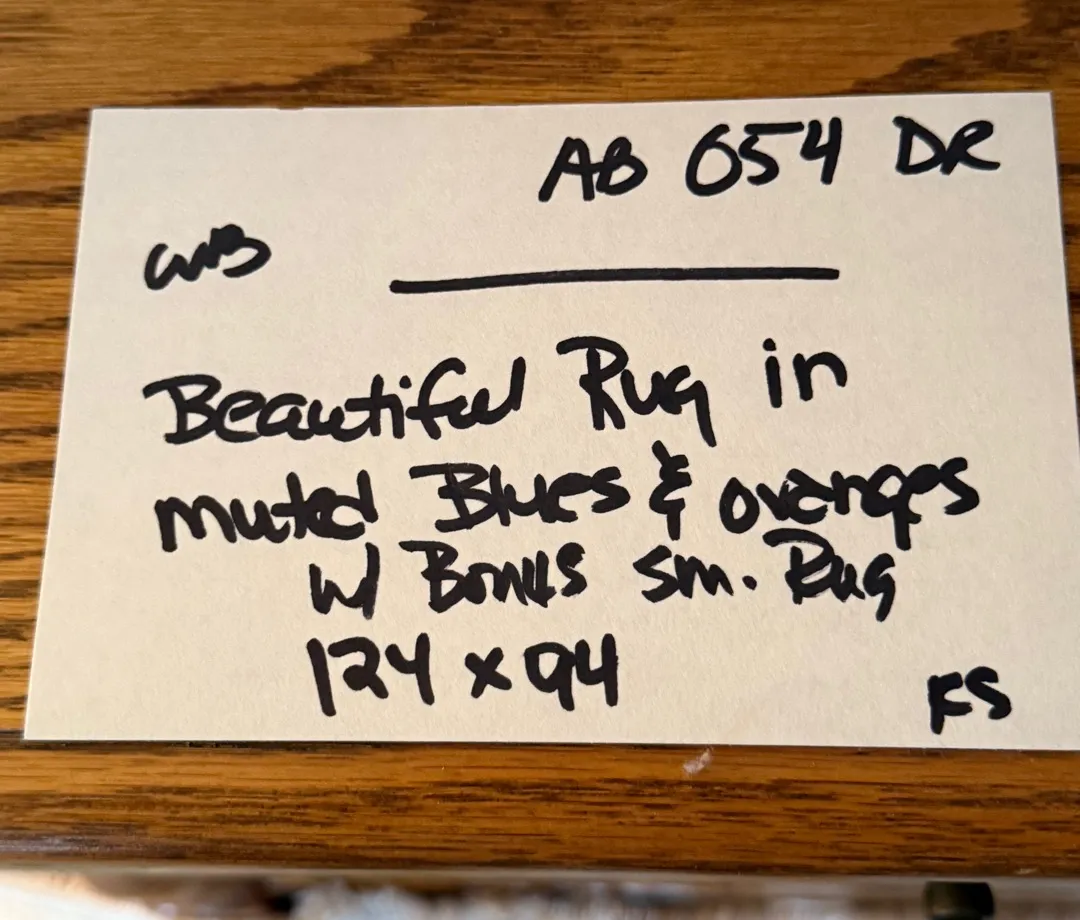 AB 054 DR
Beautiful Rug in
muted Blues & oranges
w/ Bonus sm. Rug
124 x 94
KS